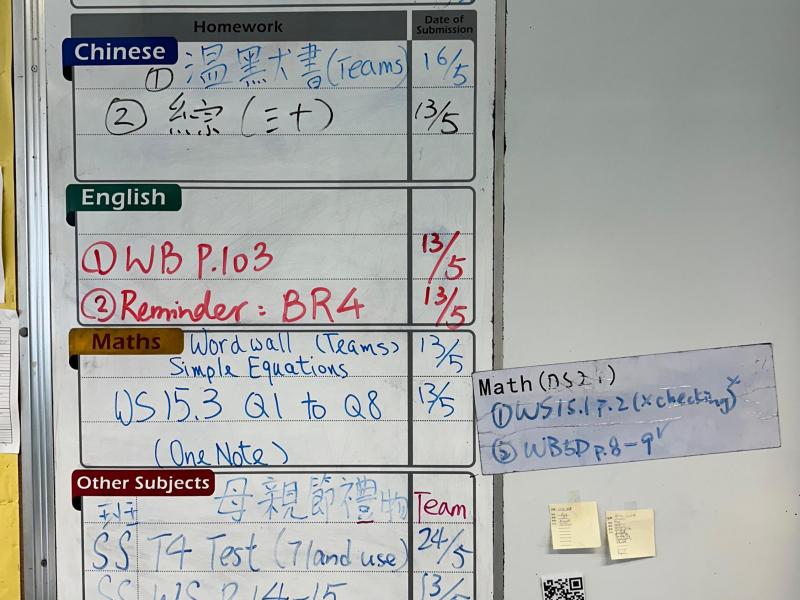 Homework
Date of Submission
Chinese
① 溫默書(Teams) 16/5
② 綜(三十) 13/5
English
① WB P.103 13/5
② Reminder: BR4 13/5
Maths
Wordwall (Teams) 13/5
Simple Equations
WS 15.3 Q1 to Q8 13/5
(OneNote)
Math
① WS15.1 p.2 (x checking)
② WB5D p.8-9
Other Subjects
母親節禮物 Team
SS T4 Test (7land use) 24/5
SS WS P.14-15 13/5